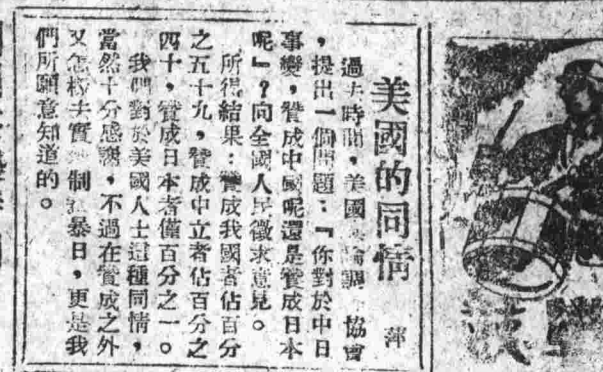 美國的同情
萍
過去時間，美國輿論調　協會
，提出一個問題：『你對於中日
事變，贊成中國呢還是贊成日本
呢』？向全國人民徵求意見。
所得結果：贊成我國者佔百分
之五十九，贊成中立者佔百分之
四十，贊成日本者僅百分之一。
我們對於美國人士這種同情，
當然十分感謝，不過在贊成之外
又怎樣去實　制　暴日，更是我
們所願意知道的。